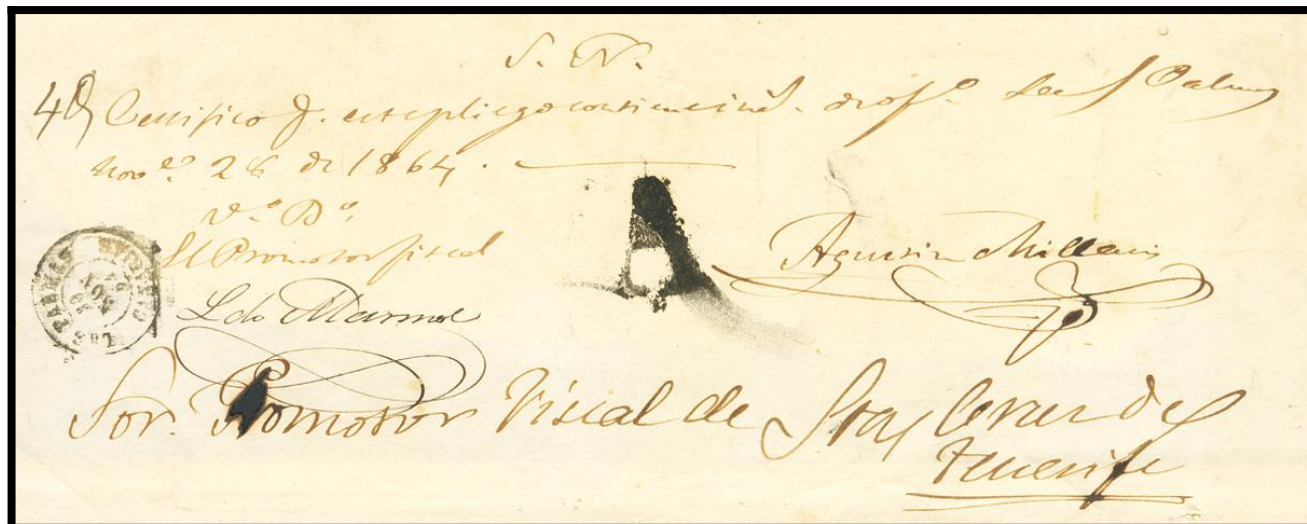 S. N.
40 Certifico q. este pliego contiene caus.ª de of.º Las Palmas
Nov.e 26 de 1864.
V.º B.º
El Promotor fiscal
Ldo Marmol
Agustin Millares
LAS PALMAS
26
NOV
A
Sor. Promotor Fiscal de Sta Cruz de
Tenerife